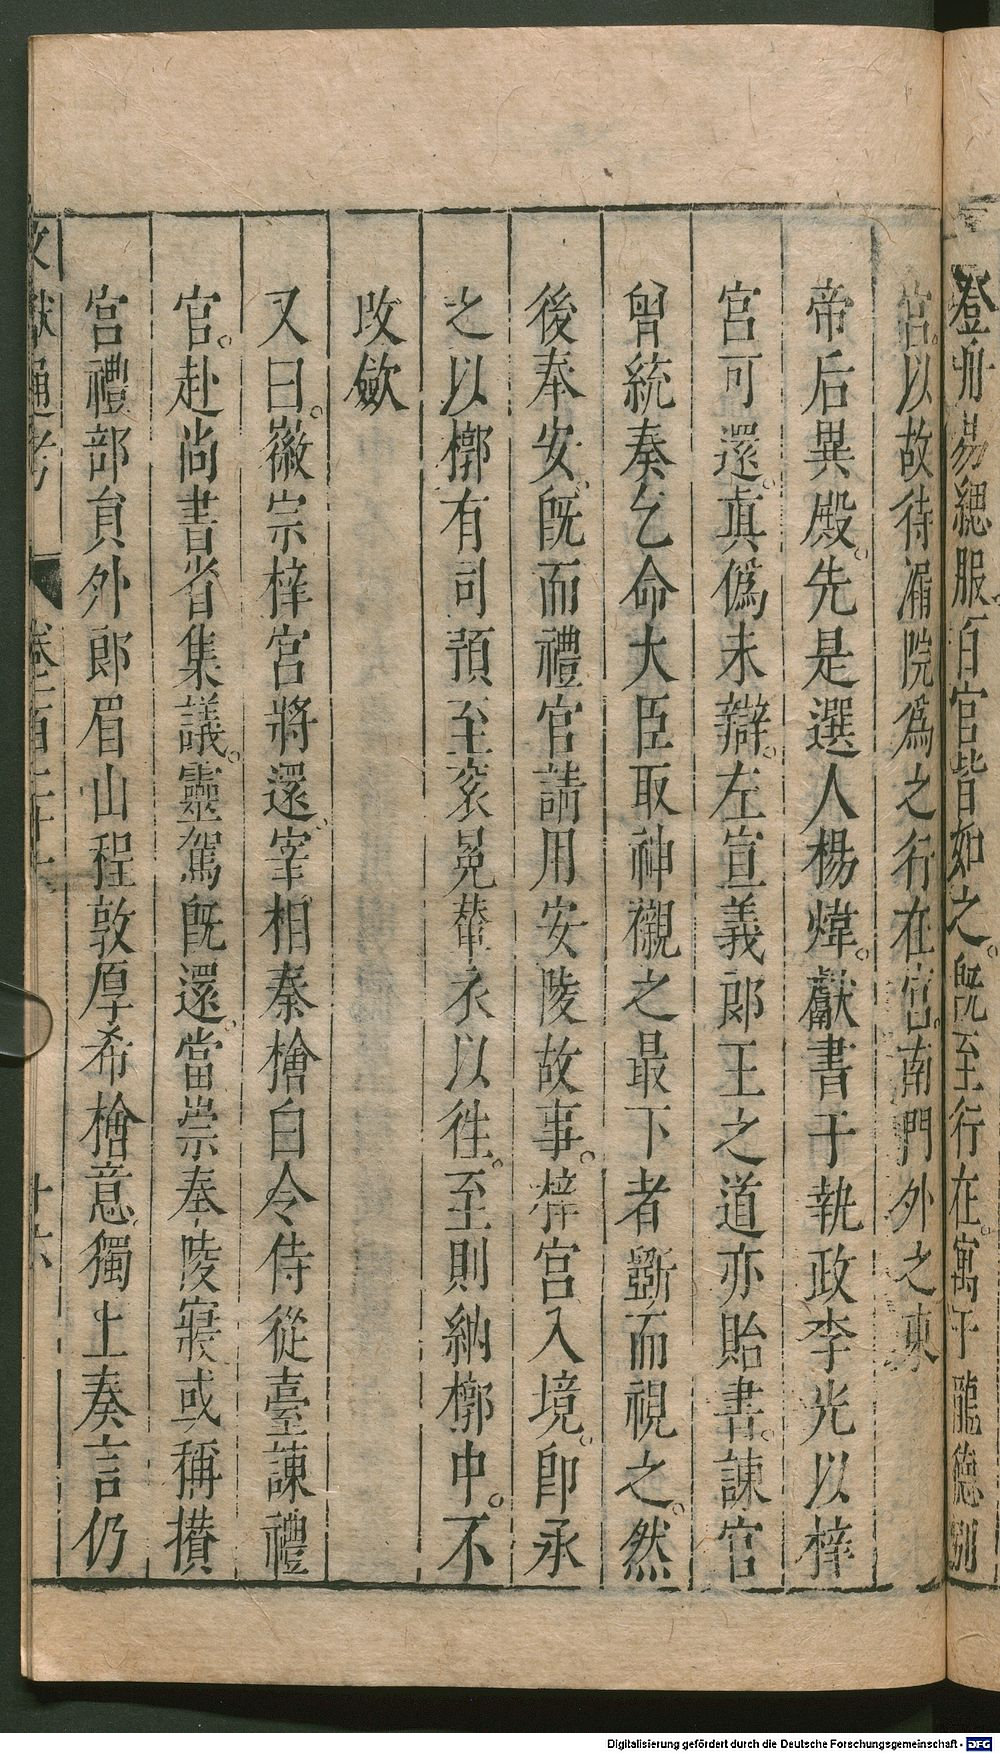 登舟易緦服百官皆如之。旣至行在。寓于龍德別
宮。以故待漏院爲之行在宮。南門外之東
帝后異殿。先是選人楊煒。獻書于執政李光以梓
宮可還。眞僞未辯。左宣義郞王之道亦貽書。諫官
曾統奏乞命大臣取神櫬之最下者斲而視之。然
後奉安。旣而禮官請用安陵故事。梓宮入境。卽承
之以槨有司預至袞冕翬衣以往。至則納槨中。不
改斂
又曰。徽宗梓宮將還。宰相秦檜白令侍從臺諫禮
官。赴尚書省集議。靈駕旣還。當崇奉陵寢或稱攢
宮禮部員外郞眉山程敦厚希檜意。獨上奏言仍
文獻通考 卷一百二十六 十六
Digitalisierung gefördert durch die Deutsche Forschungsgemeinschaft - DFG